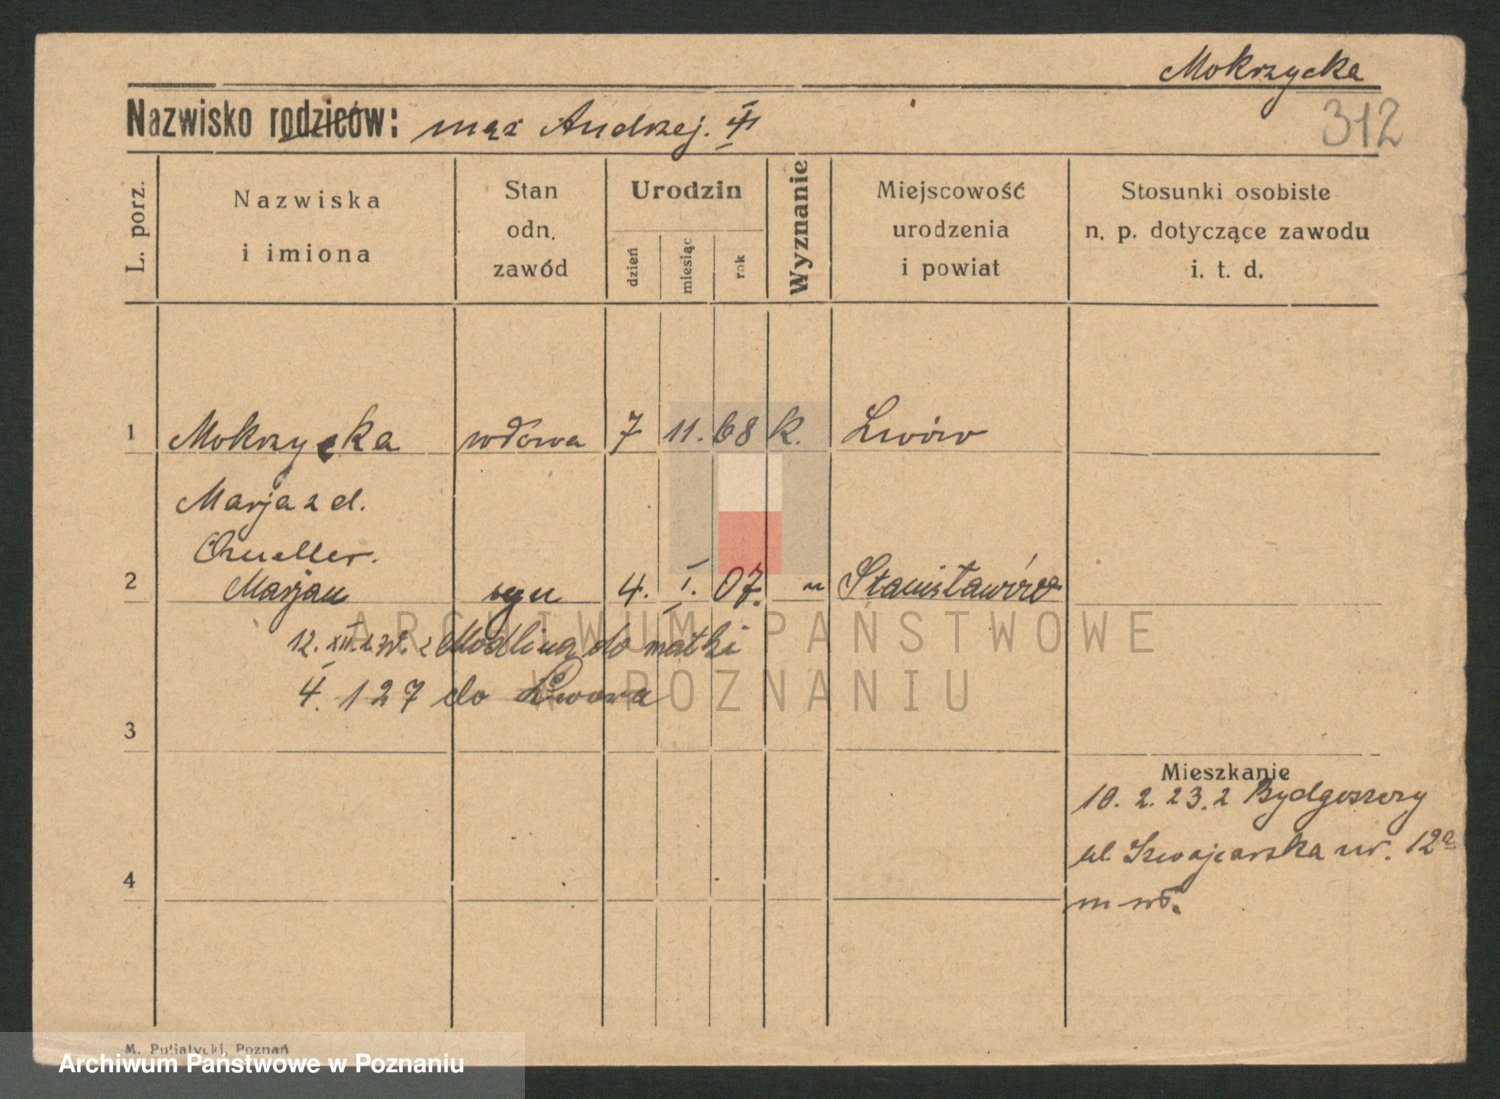 Mokrzycka
312
Nazwisko rodziców: mąż Andrzej.
L. porz.
Nazwiska
i imiona
Stan
odn.
zawód
Urodzin
dzień
miesiąc
rok
Wyznanie
Miejscowość
urodzenia
i powiat
Stosunki osobiste
n. p. dotyczące zawodu
i. t. d.
1 Mokrzycka wdowa 7 11. 68 k. Lwów
Marja z d.
2 Marjan syn 4. I. 07. " Stanisławów
12. XII. z Modlina do matki
4. 1 27 do Lwowa
3
Mieszkanie
10. 2. 23. z Bydgoszczy
ul Szwajcarska nr. 12a
4
m wł.
M. Putiatycki, Poznań
ARCHIWUM PAŃSTWOWE
W POZNANIU
Archiwum Państwowe w Poznaniu